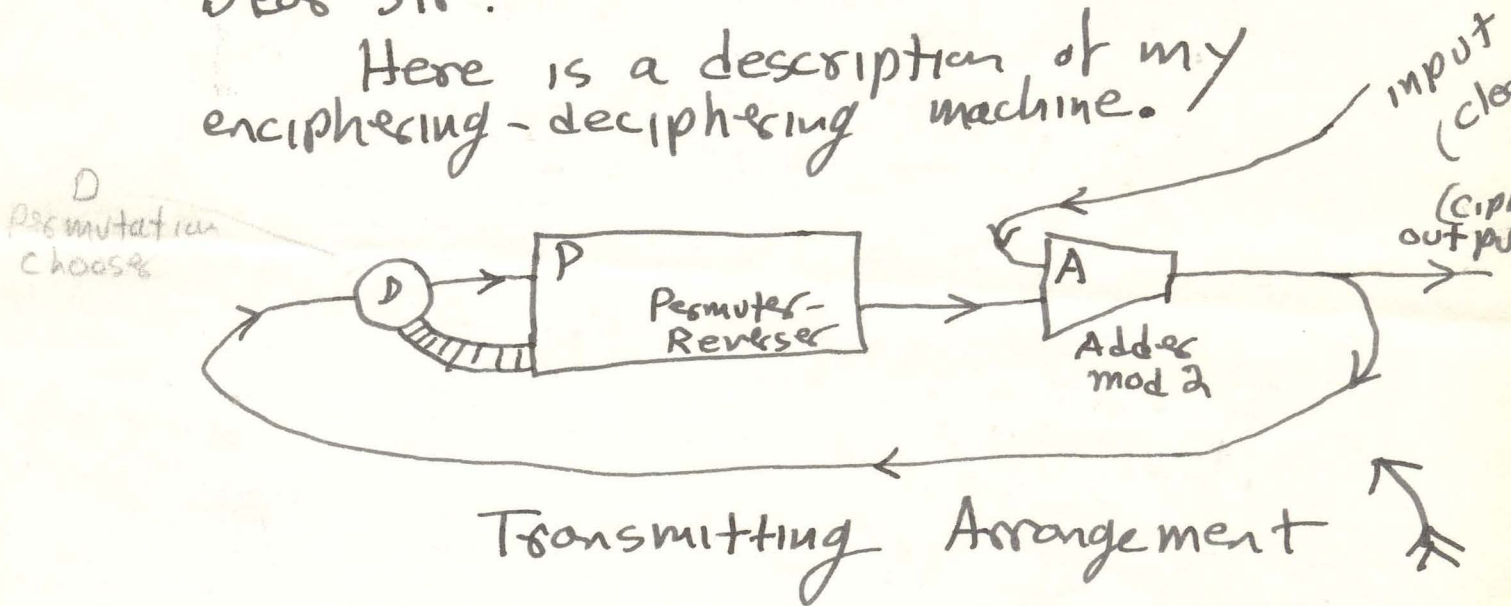 Dear Sir:
Here is a description of my
enciphering-deciphering machine.
input
D
Permutation
Chooser
D
P
Permuter-
Reverser
A
Adder
mod 2
Transmitting Arrangement